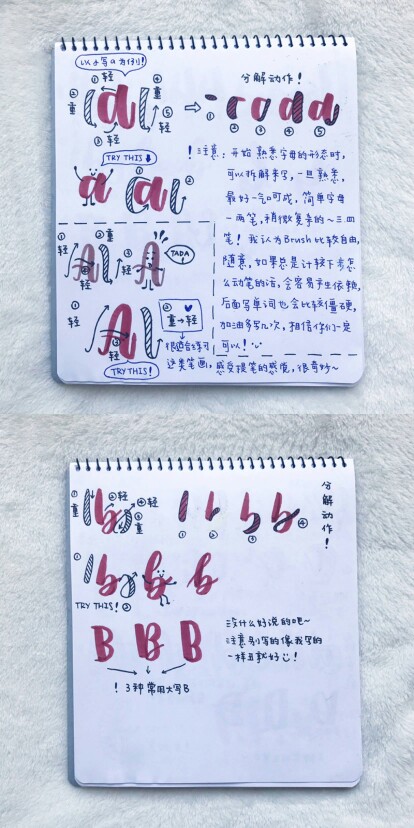 以小写a为例!
①轻
②重
a
④重
⑤轻
③轻
⇨
分解动作!
- r o d a
① ② ③ ④ ⑤
TRY THIS ↓
a
① a ②
!注意:开始熟悉字母的形态时,
可以拆解来写,一旦熟悉,
最好一气呵成,简单字母
一两笔,稍微复杂的~三四
笔!我认为Brush比较自由,
随意,如果总是计较下步怎
么动笔的话,会容易产生依赖,
后面写单词也会比较僵硬,
加油多写几次,相信你们一定
可以!
① 轻
A
②重
③轻
A
TADA!
①轻
A
③轻
② 重→轻
很适合练习
这类笔画,感受提笔的感觉,很奇妙~
TRY THIS!
①重
b
②轻
④轻
③重
l b b b
① ② ③ ④
分解动作!
① b b b
TRY THIS! ②
B B B
!3种常用大写B
没什么好说的吧~
注意别写的像我写的
一样丑就好!